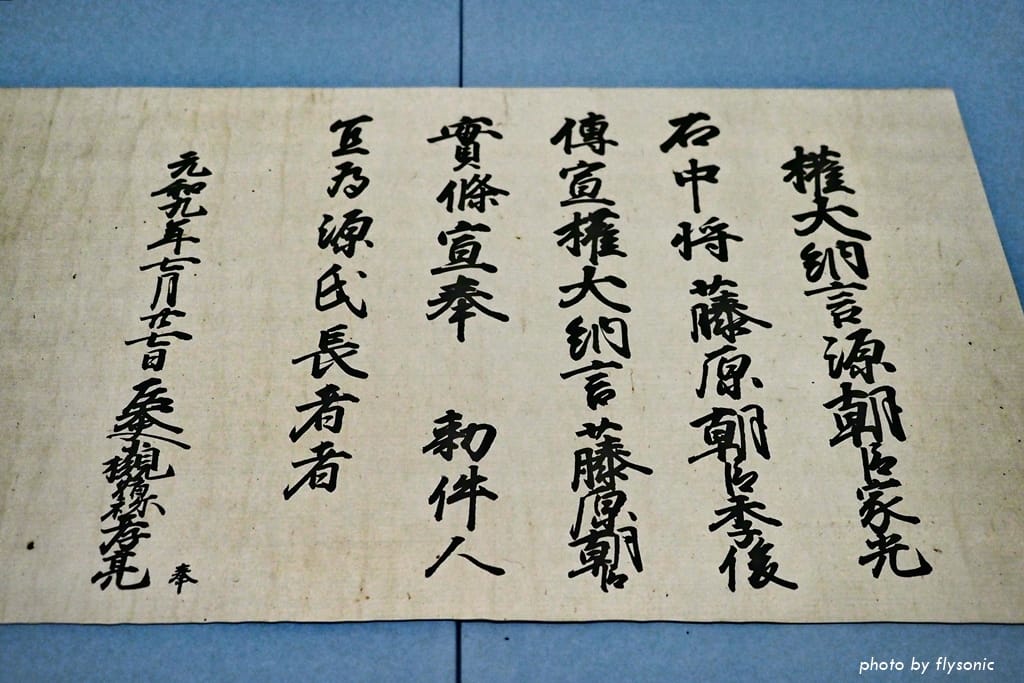 權大納言源朝臣家光
右中将藤原朝臣季俊
傳宣權大納言藤原朝臣
實條宣奉 勅件人
宜為源氏長者者
元和九年七月廿七日 左大史小槻宿祢孝亮 奉
photo by flysonic